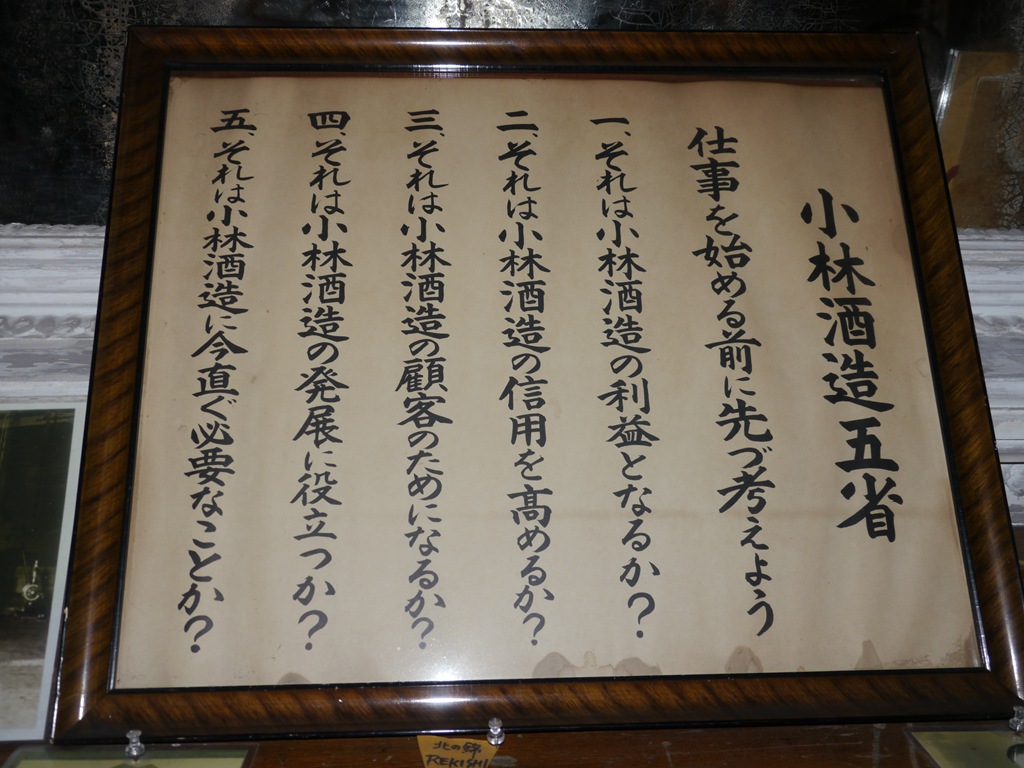 小林酒造五省
仕事を始める前に先づ考えよう
一、それは小林酒造の利益となるか？
二、それは小林酒造の信用を高めるか？
三、それは小林酒造の顧客のためになるか？
四、それは小林酒造の発展に役立つか？
五、それは小林酒造に今直ぐ必要なことか？
北の錦
REKISHI